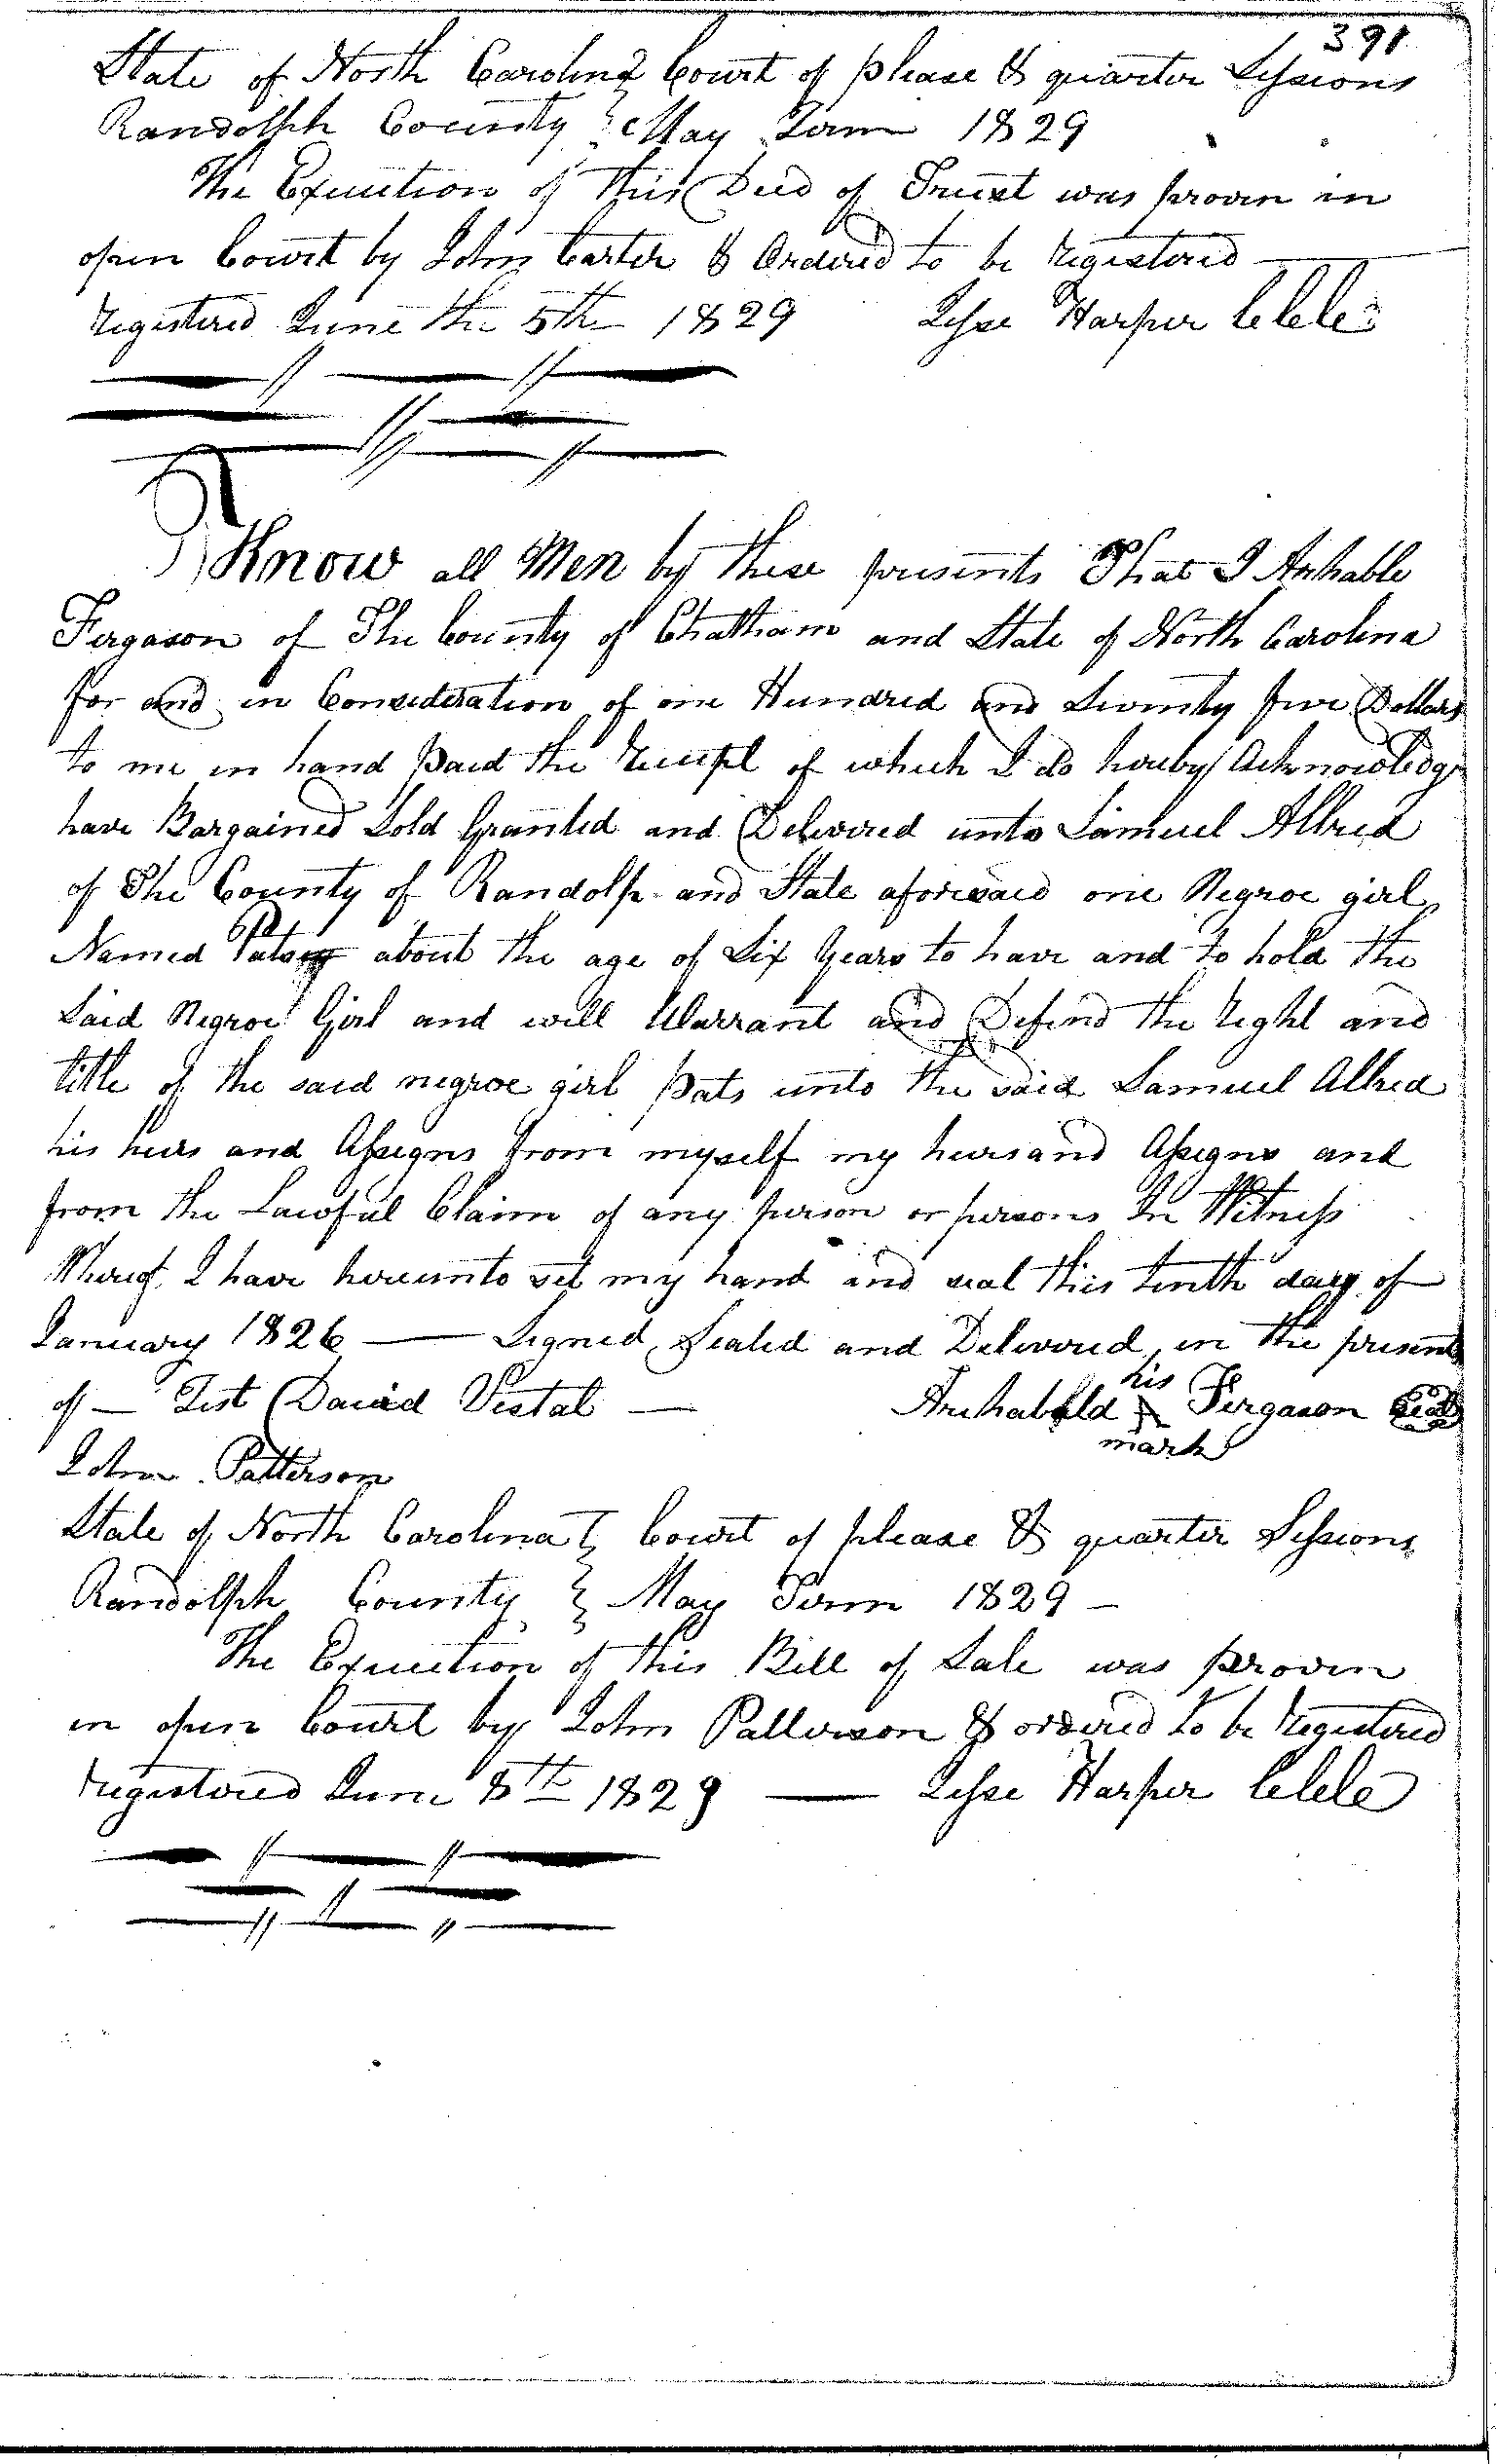 391
State of North Carolina } Court of please & quarter Sessions
Randolph County } May Term 1829
The Execution of this Deed of Trust was proven in
open Court by John Carter & Ordered to be registered
registered June the 5th 1829 Jesse Harper CCC
Know all Men by these presents That I Archable
Fergason of The County of Chatham and State of North Carolina
for and in Consideration of one Hundred and Seventy five Dollars
to me in hand paid the receipt of which I do hereby Acknowledge
have Bargained Sold Granted and Delivered unto Samuel Allred
of The County of Randolp and State aforesaid one Negroe girl
Named about the age of Six Years to have and to hold the
Said Negroe Girl and will Warrant and Defend the right and
title of the said negroe girl pats unto the said Samuel Allred
his heirs and Assigns from myself my heirs and Assigns and
from the Lawful Claim of any person or persons In Witness
Whereof I have hereunto set my hand and seal this tenth day of
January 1826 — Signed, Sealed and Delivered in the presents
of — Test David Vestal — Archabald his mark Fergason Seal
John Patterson
State of North Carolina } Court of please & quarter Sessions
Randolph County } May Term 1829 —
The Execution of this Bill of Sale was proven
in open Court by John Patterson & ordered to be registered
registered June 8th 1829 — Jesse Harper CCC